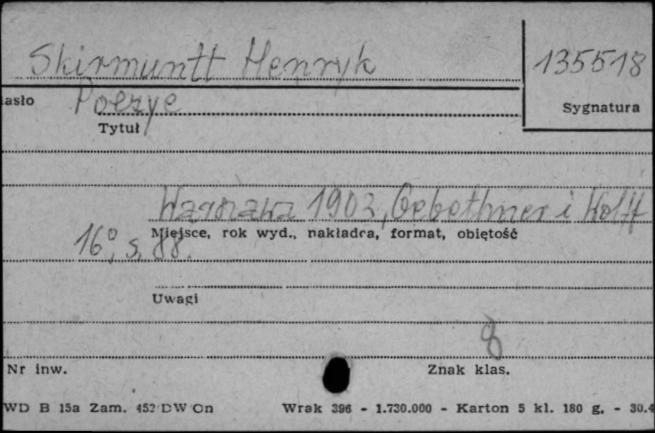 Skirmuntt Henryk 135518
asło Poezye Sygnatura
Tytuł
Warszawa 1903, Gebethner i Wolff
Miejsce, rok wyd., nakładca, format, obiętość
16°, s. 88.
Uwagi
8
Nr inw. Znak klas.
WD B 15a Zam. 452 DW On Wrak 396 - 1.730.000 - Karton 5 kl. 180 g. - 30.4